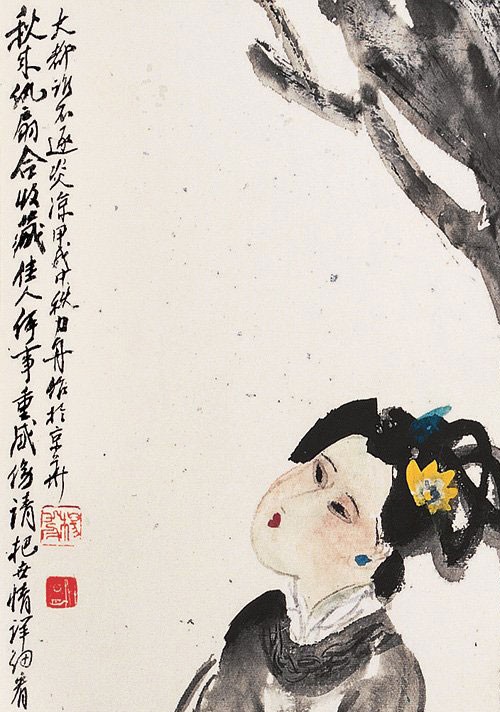 秋来纨扇合收藏佳人何事重感傷请把世情详细看
大都谁不逐炎凉甲戌中秋力舟於京